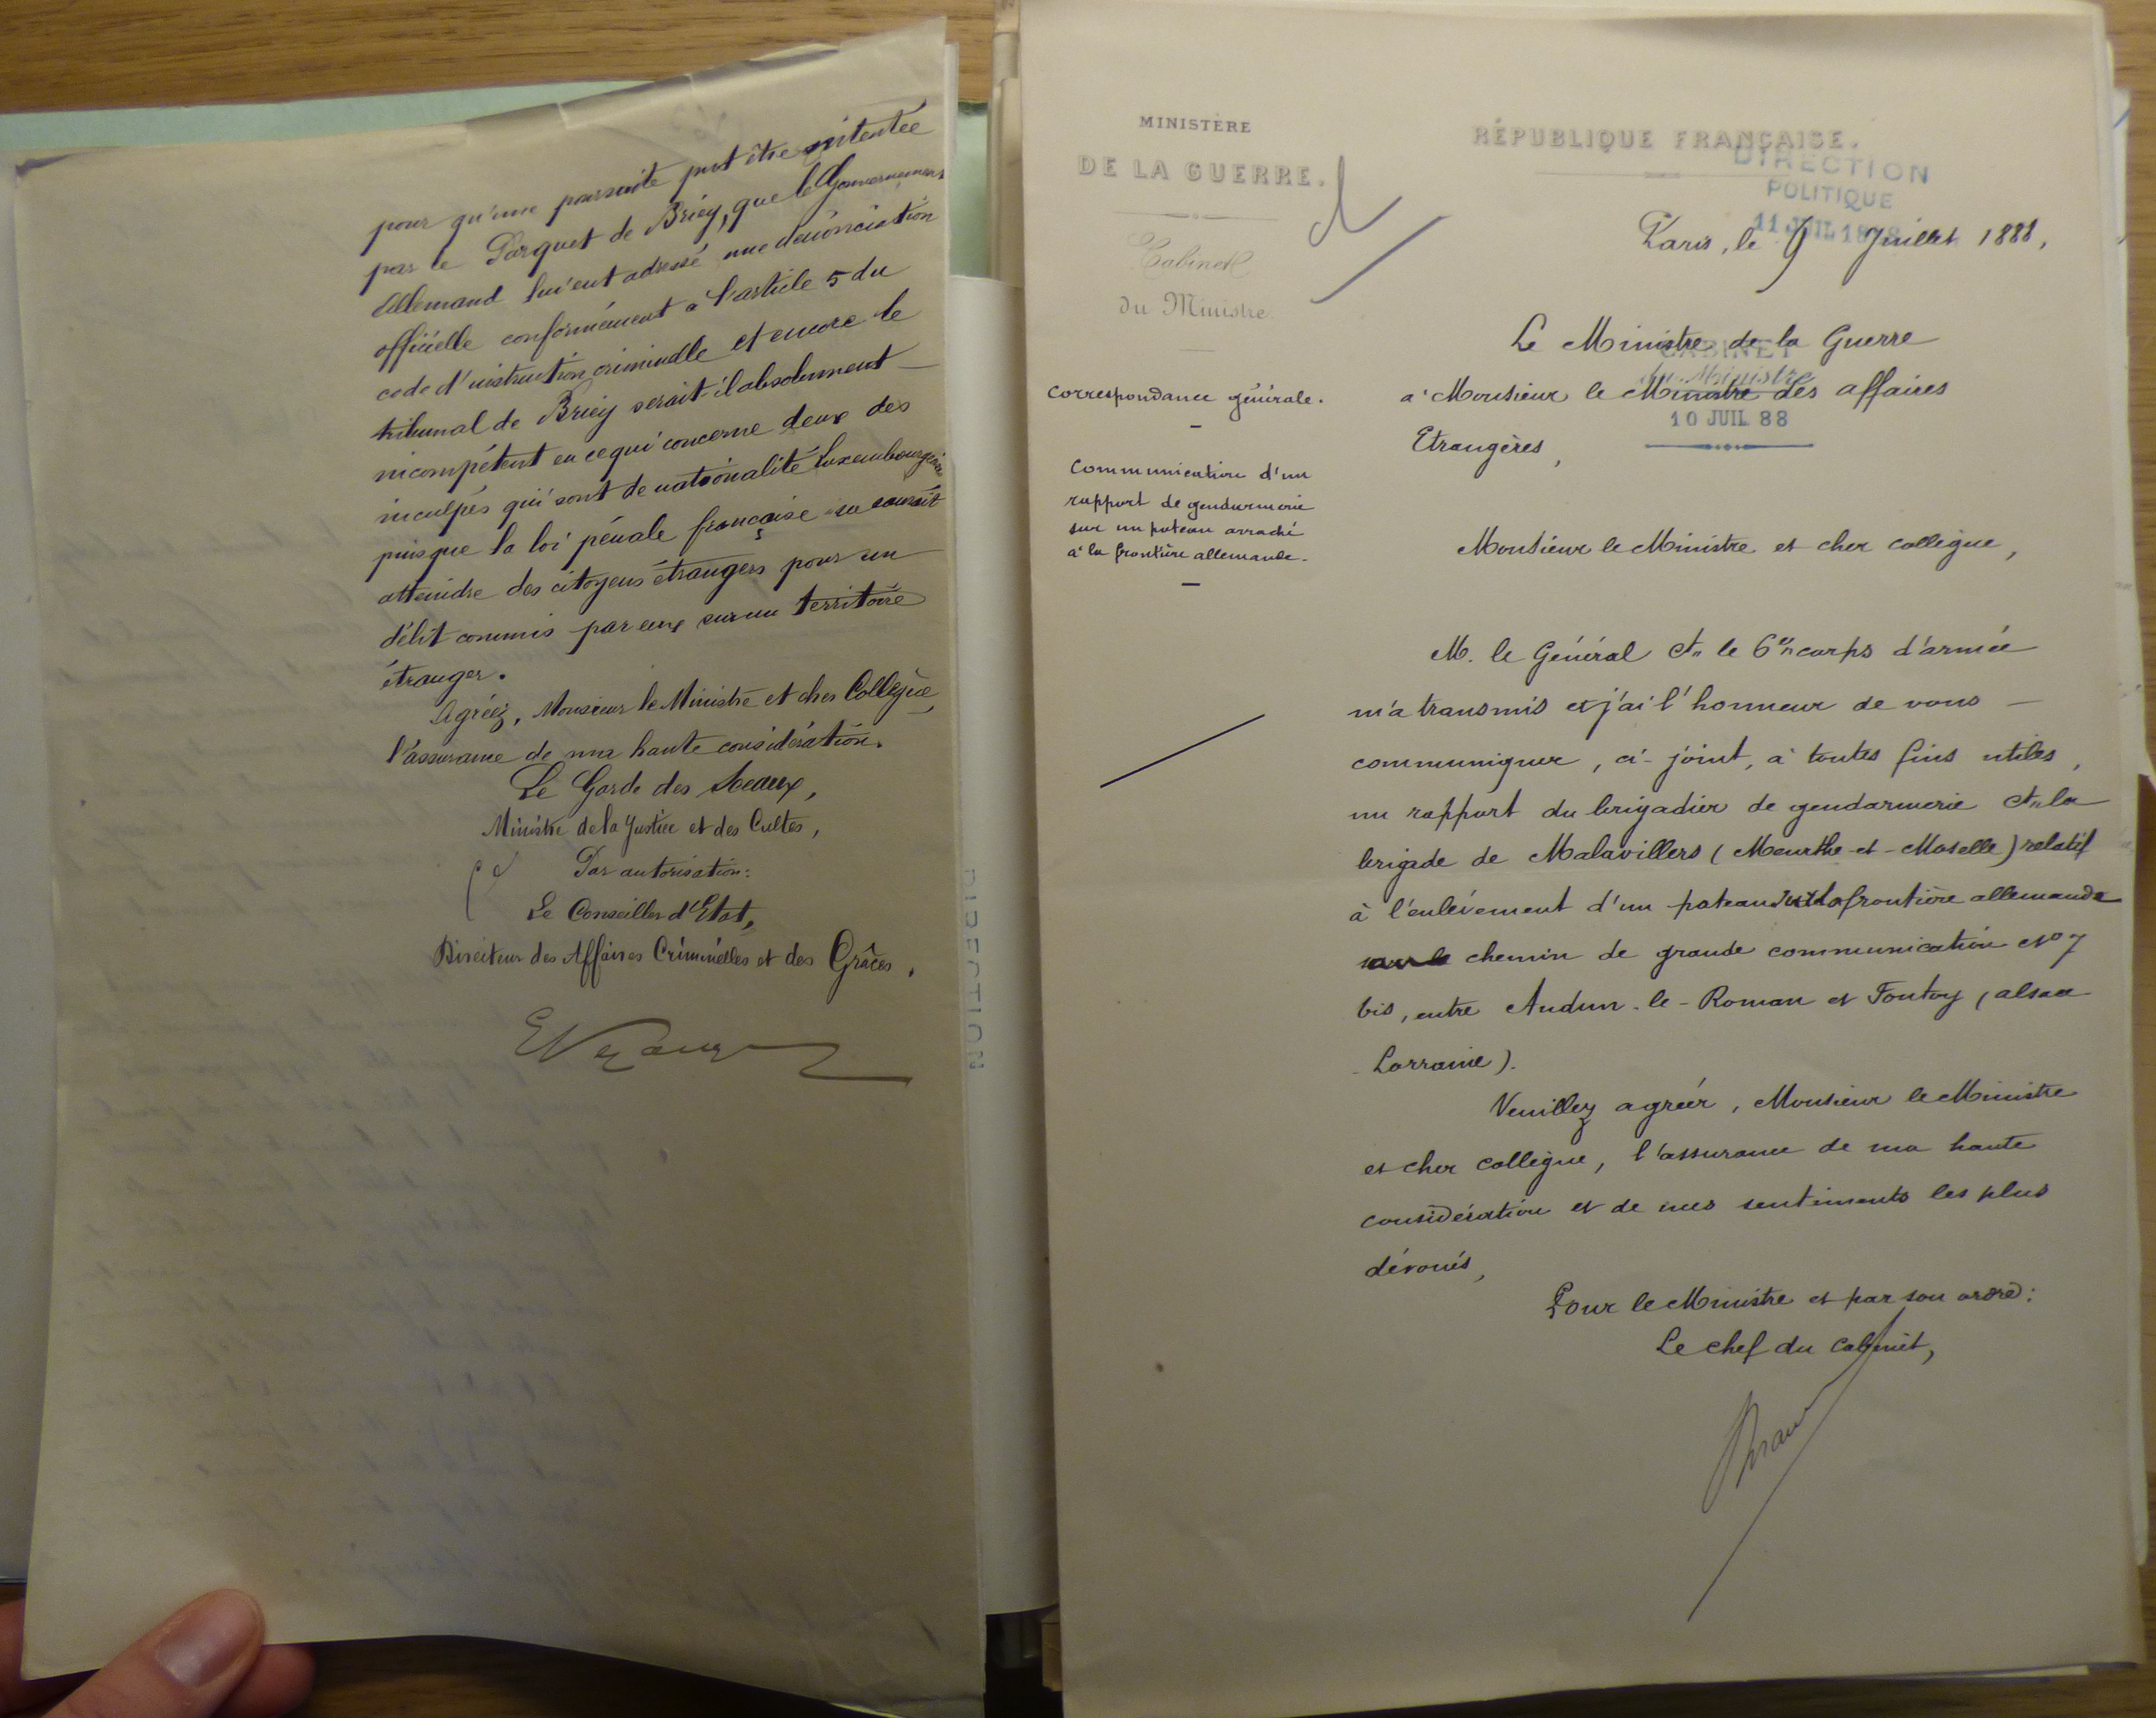 pour qu'une poursuite put être intentée
par le Parquet de Briey, que le Gouvernement
Allemand lui eut adressé une dénonciation
officielle conformément à l'article 5 du
code d'instruction criminelle et encore le
tribunal de Briey serait-il absolument
incompétent en ce qui concerne deux des
inculpés qui sont de nationalité Luxembourgeoise
puisque la loi pénale française ne saurait
atteindre des citoyens étrangers pour un
délit commis par eux sur un territoire
étranger.
Agréez, Monsieur le Ministre et cher Collègue,
l'assurance de ma haute considération.
Le Garde des Sceaux,
Ministre de la Justice et des Cultes,
Par autorisation:
Le Conseiller d'Etat,
Directeur des Affaires Criminelles et des Grâces,
DIRECTION
MINISTÈRE
DE LA GUERRE.
Cabinet
du Ministre
Correspondance générale.
Communication d'un
rapport de gendarmerie
sur un poteau arraché
à la frontière allemande.
RÉPUBLIQUE FRANÇAISE.
DIRECTION
POLITIQUE
11 JUIL 1888
Paris, le 9 Juillet 1888,
Le Ministre de la Guerre
CABINET
du Ministre
à Monsieur le Ministre des affaires
10 JUIL 88
Etrangères,
Monsieur le Ministre et cher collègue,
M. le Général Ct le 6e corps d'armée
m'a transmis et j'ai l'honneur de vous
communiquer, ci-joint, à toutes fins utiles,
un rapport du brigadier de gendarmerie Ct la
brigade de Malavillers (Meurthe-et-Moselle) relatif
à l'enlèvement d'un poteau sur la frontière allemande
sur le chemin de grande communication No 7
bis, entre Audun-le-Roman et Fontoy (alsace
Lorraine).
Veuillez agréer, Monsieur le Ministre
et cher collègue, l'assurance de ma haute
considération et de mes sentiments les plus
dévoués,
Pour le Ministre et par son ordre:
Le chef du cabinet,